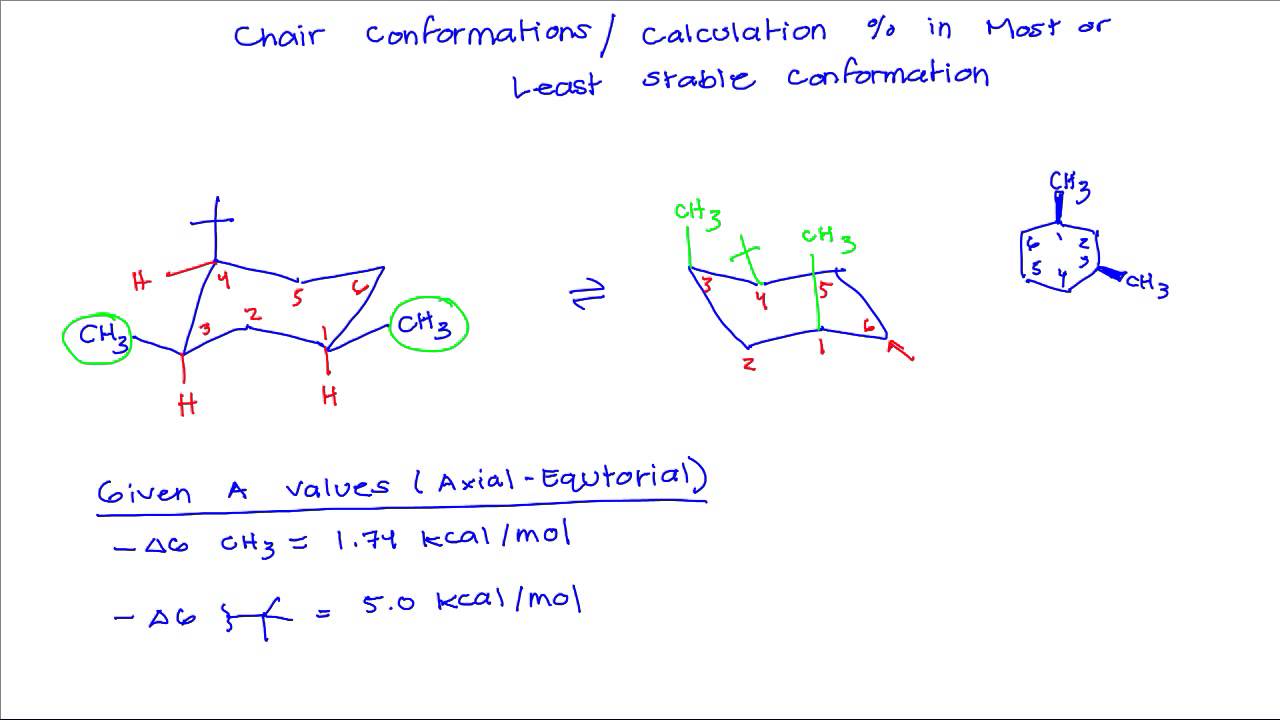 Chair Conformations / Calculation % in Most or
Least stable conformation
CH3
CH3
CH3
6 1 2
5 4 3
CH3
H
4
5
6
CH3
3
2
1
CH3
H
H
⇌
3
4
5
6
2
1
Given A values (Axial-Equtorial)
- ΔG CH3 = 1.74 kcal/mol
- ΔG = 5.0 kcal/mol